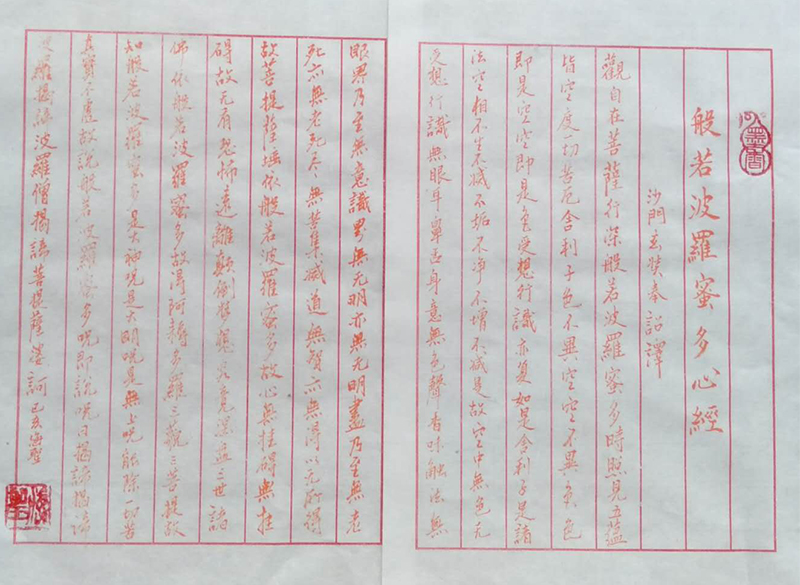 般若波羅蜜多心經
沙門玄奘奉詔譯
觀自在菩薩行深般若波羅蜜多時照見五蘊
皆空度一切苦厄舍利子色不異空空不異色色
即是空空即是色受想行識亦复如是舍利子是諸
法空相不生不滅不垢不净不增不減是故空中無色无
受想行識無眼耳鼻舌身意無色聲香味觸法無
眼界乃至無意識界無无明亦無无明盡乃至無老
死亦無老死尽無苦集滅道無智亦無得以无所得
故菩提薩埵依般若波羅蜜多故心無挂碍無挂
碍故无有恐怖遠離顛倒梦想究竟涅盘三世諸
佛依般若波羅蜜多故得阿耨多羅三藐三菩提故
知般若波羅蜜多是大神咒是大明咒是無上咒能除一切苦
真實不虛故說般若波羅蜜多咒即說咒曰揭諦揭諦
波羅揭諦波羅僧揭諦菩提薩婆訶 己亥海